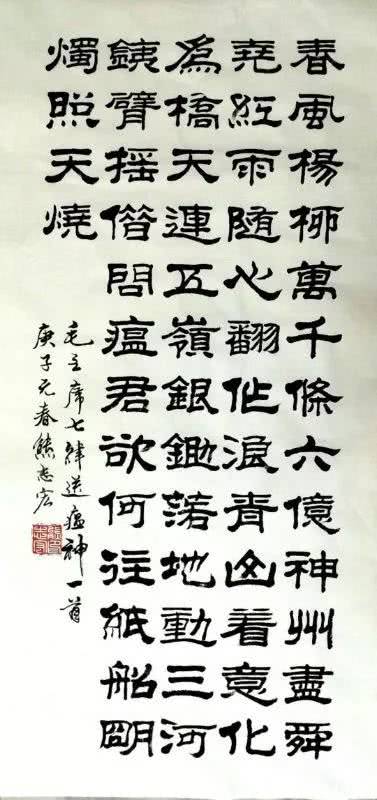 春風楊柳萬千條六億神州盡舜
堯紅雨随心翻作浪青山着意化
為橋天連五嶺銀鋤落地動三河
銕臂摇借問瘟君欲何往紙船明
燭照天燒
毛主席七律送瘟神一首
庚子元春熊志宏